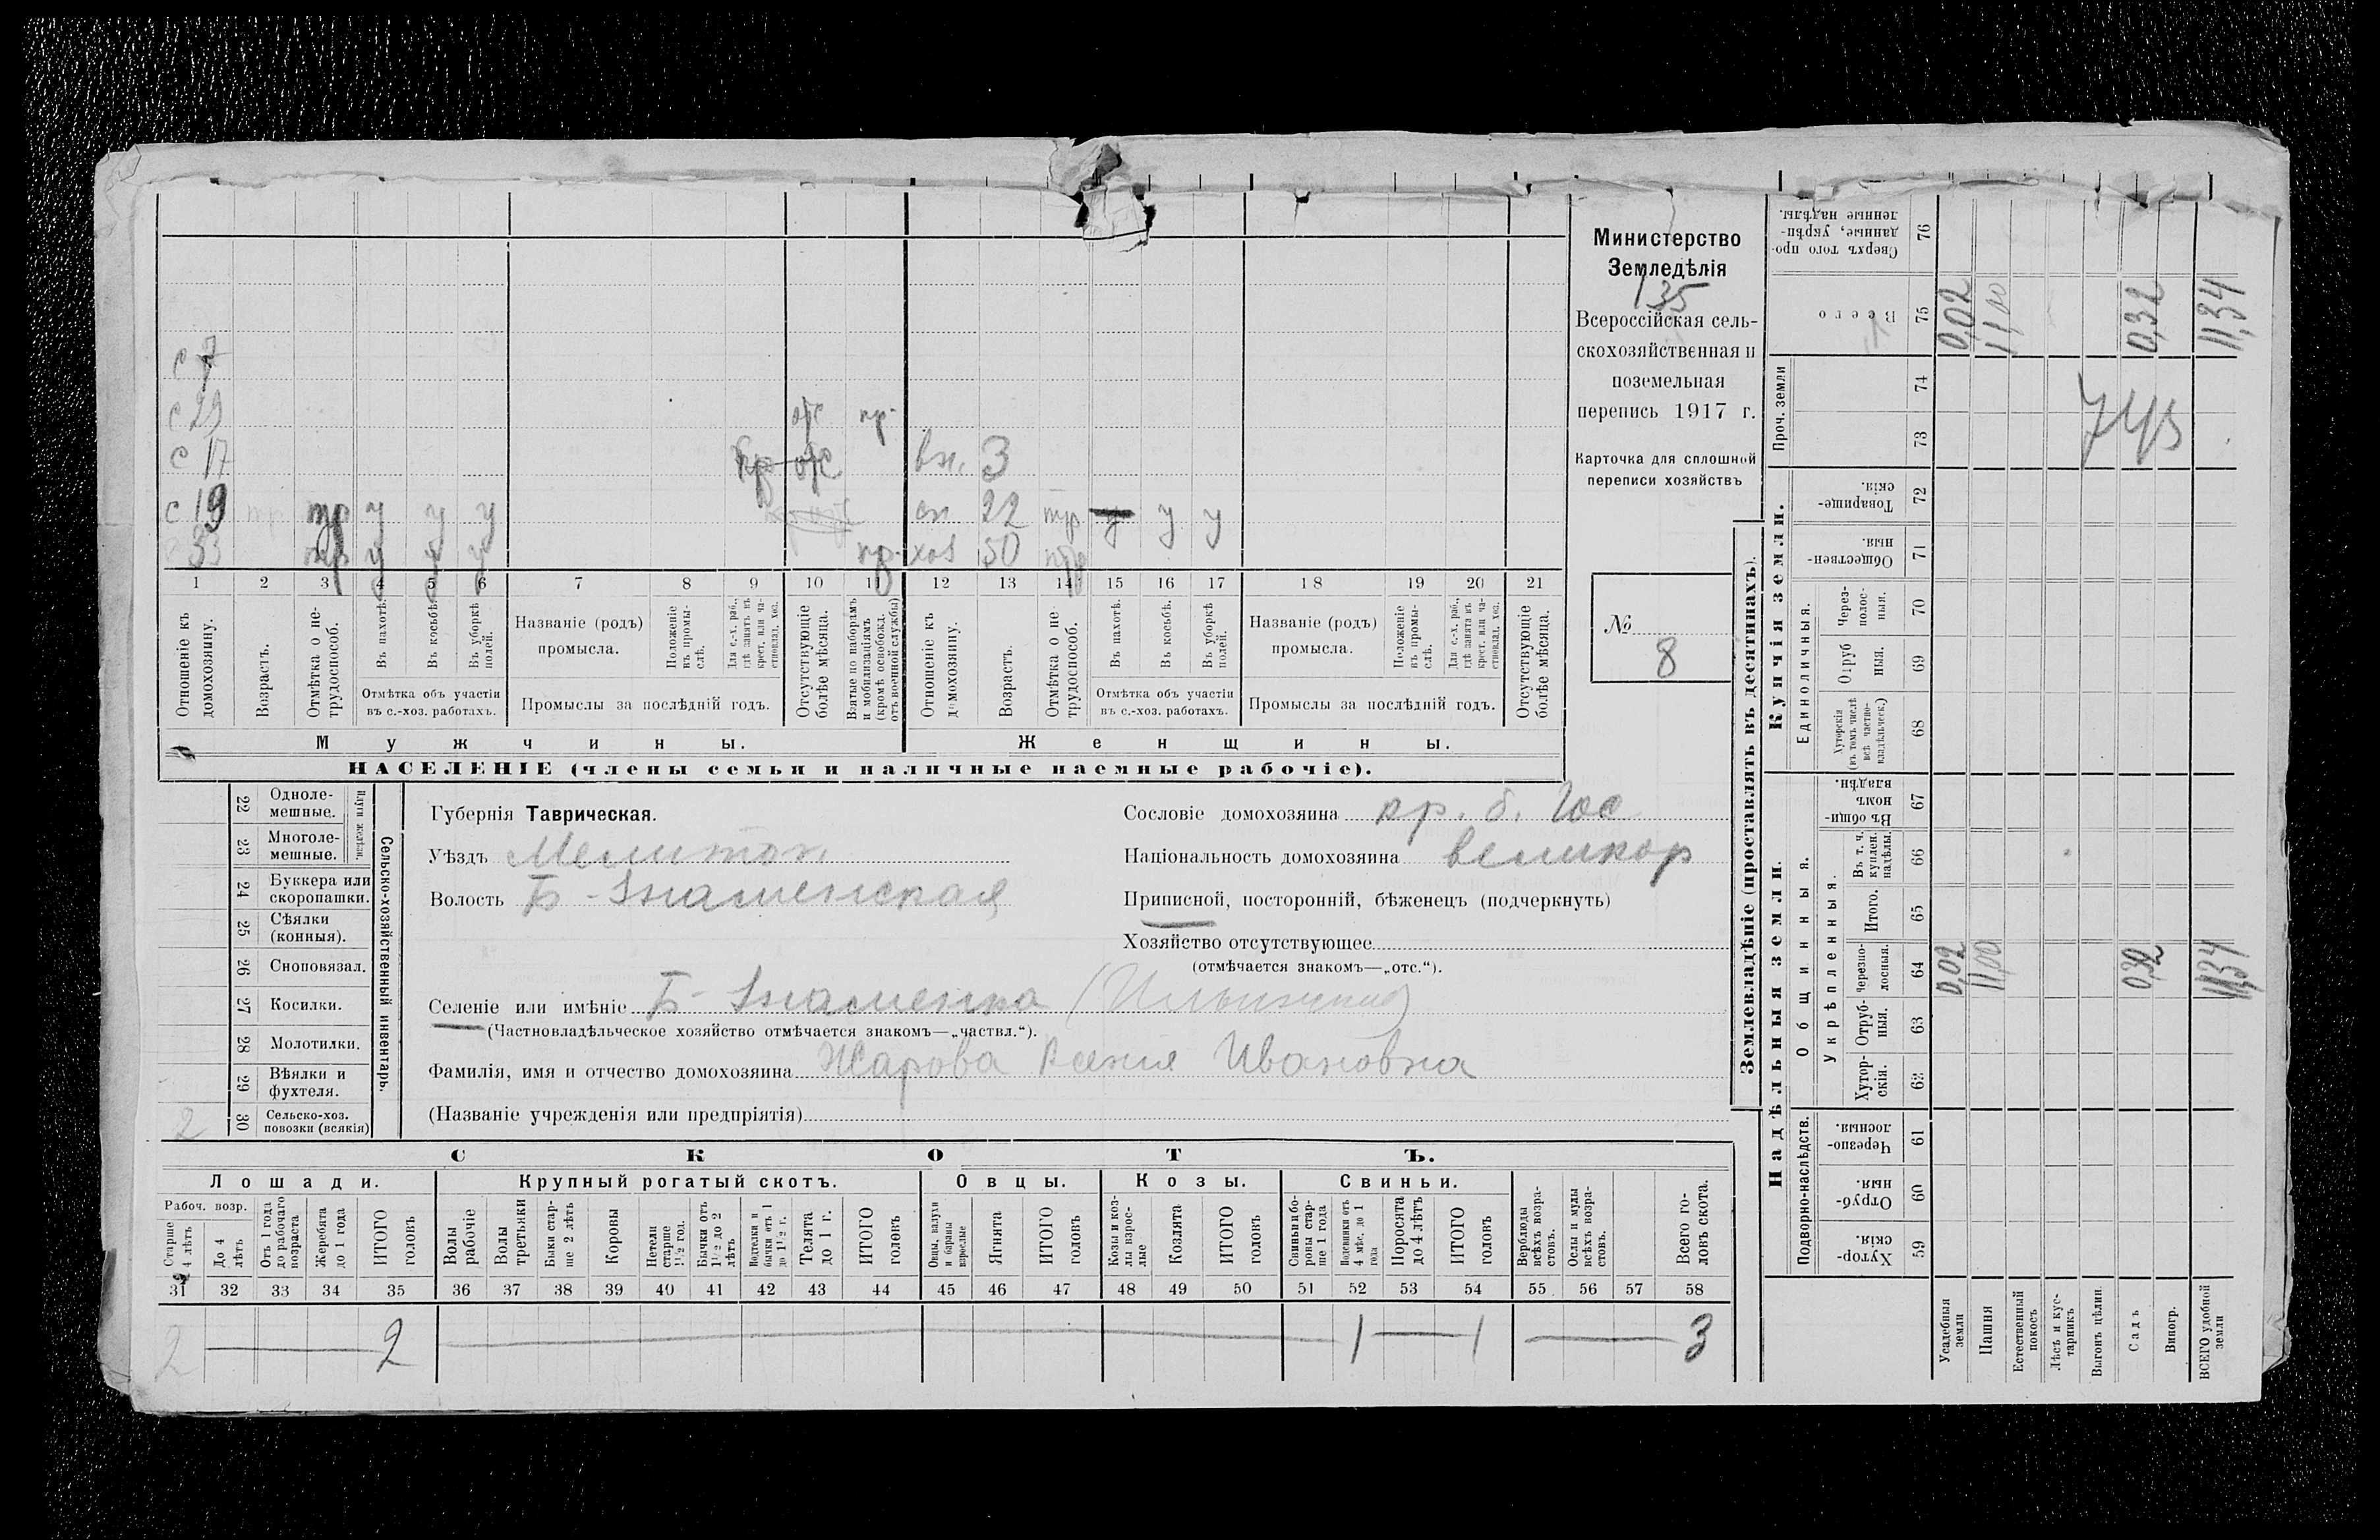 Министерство
Земледѣлія
135
Всероссійская сель-
скохозяйственная и
поземельная
перепись 1917 г.
Карточка для сплошной
переписи хозяйствъ
№
8
с 7
с 29 отс пр.
с 17 отс вн. 3
с 19 тр у у у сн 22 тр у у у
53 тр у у у пр. хоз 50 тр
1 2 3 4 5 6 7 8 9 10 11 12 13 14 15 16 17 18 19 20 21
Отношеніе къ домохозяину.
Возрастъ.
Отмѣтка о не-трудоспособ.
Въ пахотѣ.
Въ косьбѣ.
Въ уборкѣ полей.
Отмѣтка объ участіи
въ с.-хоз. работахъ.
Названіе (родъ)
промысла.
Положеніе въ промы-слѣ.
Для с.-х. раб., гдѣ занятъ въ крест. или ча-стновлад. хоз.
Промыслы за послѣдній годъ.
Отсутствующіе болѣе мѣсяца.
Взятые по наборамъ и мобилизаціямъ (кромѣ освобожд. отъ военной службы)
Отношеніе къ домохозяину.
Возрастъ.
Отмѣтка о не-трудоспособ.
Въ пахотѣ.
Въ косьбѣ.
Въ уборкѣ полей.
Отмѣтка объ участіи
въ с.-хоз. работахъ.
Названіе (родъ)
промысла.
Положеніе въ промы-слѣ.
Для с.-х. раб., гдѣ занята въ крест. или ча-стновлад. хоз.
Промыслы за послѣдній годъ.
Отсутствующіе болѣе мѣсяца.
Мужчины. Женщины.
НАСЕЛЕНІЕ (члены семьи и наличные наемные рабочіе).
22 Одноле-мешные.
23 Многоле-мешные.
Плуги желѣзн.
24 Буккера или скоропашки.
25 Сѣялки (конныя).
26 Сноповязал.
27 Косилки.
28 Молотилки.
29 Вѣялки и фухтеля.
30 Сельско-хоз. повозки (всякія) 2
Сельско-хозяйственный инвентарь.
Губернія Таврическая.
Уѣздъ Мелитоп.
Волость Б-Знаменская
Сословіе домохозяина кр. б. Гос
Національность домохозяина великор
Приписной, посторонній, бѣженецъ (подчеркнуть)
Хозяйство отсутствующее
(отмѣчается знакомъ—„отс.“).
Селеніе или имѣніе Б-Знаменка (Ильинка)
(Частновладѣльческое хозяйство отмѣчается знакомъ—„частвл.“).
Фамилія, имя и отчество домохозяина Жарова Ксения Ивановна
(Названіе учрежденія или предпріятія)
СКОТЪ.
Лошади. Крупный рогатый скотъ. Овцы. Козы. Свиньи.
Рабоч. возр.
Старше 4 лѣтъ
До 4 лѣтъ
Отъ 1 года до рабочаго возраста
Жеребята до 1 года
ИТОГО головъ
Волы рабочіе
Волы третьяки
Быки стар-ше 2 лѣтъ
Коровы
Нетели старше 1½ год.
Бычки отъ 1½ до 2 лѣтъ
Подтелки и бычки отъ 1 до 1½ г.
Телята до 1 г.
ИТОГО головъ
Овцы, валухи и бараны взрослые
Ягнята
ИТОГО головъ
Козы и коз-лы взрос-лые
Козлята
ИТОГО головъ
Свиньи и бо-ровы стар-ше 1 года
Подсвинки отъ 4 мѣс. до 1 года
Поросята до 4 лѣтъ
ИТОГО головъ
Верблюды всѣхъ возра-стовъ.
Ослы и мулы всѣхъ возра-стовъ.
Всего го-ловъ скота.
31 32 33 34 35 36 37 38 39 40 41 42 43 44 45 46 47 48 49 50 51 52 53 54 55 56 57 58
2 2 1 1 3
Землевладѣніе (проставлять въ десятинахъ).
Надѣльныя земли. Купчія земли.
Проч. земли
Подворно-наслѣдств.
Общинныя.
Укрѣпленныя.
Единоличныя.
Хутор-скія. 59
Отруб-ныя. 60
Черезпо-лосныя. 61
Хутор-скія. 62
Отруб-ныя. 63
Черезпо-лосныя. 64
Итого. 65
Въ т. ч. куплен. надѣлы. 66
Въ общи-номъ владѣн. 67
Хуторскія (въ томъ числѣ всѣ частно-владѣльческ.) 68
Отруб ныя. 69
Через-полос-ныя. 70
Обществен-ныя. 71
Товарище-скія. 72
73
74
Всего 75
Сверхъ того про-данные, укрѣп-ленные надѣлы. 76
Усадебныя земли 0,02 0,02
Пашня 11,00 11,00
Естественный покосъ
Лѣсъ и кус-тарникъ
Выгонъ цѣлин.
Садъ 0,32 0,32
Виногр.
ВСЕГО удобной земли 11,34 11,34